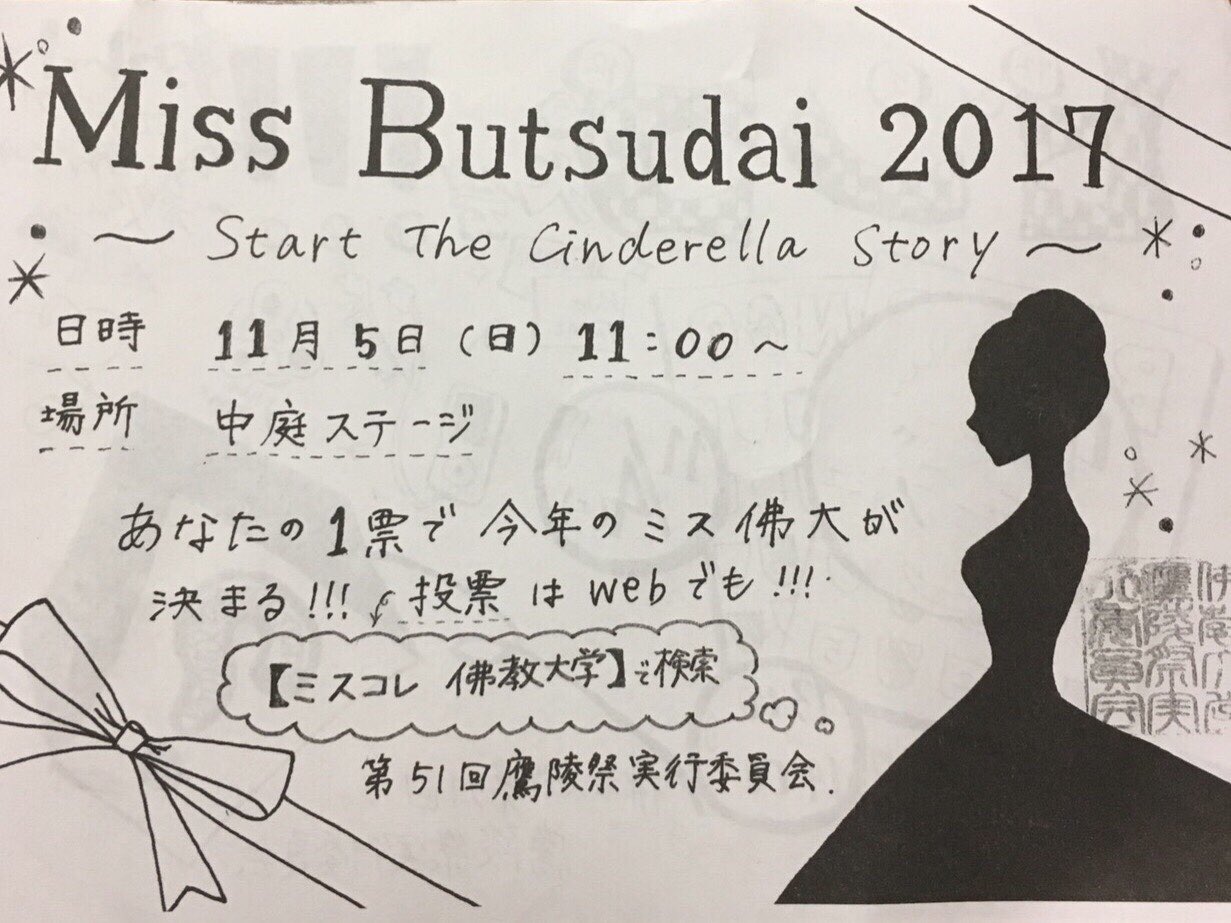 Miss Butsudai 2017
～ Start The Cinderella Story ～
日時 11月5日(日) 11:00～
場所 中庭ステージ
あなたの1票で今年のミス佛大が
決まる!!! 投票はwebでも!!!
【ミスコレ 佛教大学】で検索
第51回鷹陵祭実行委員会.